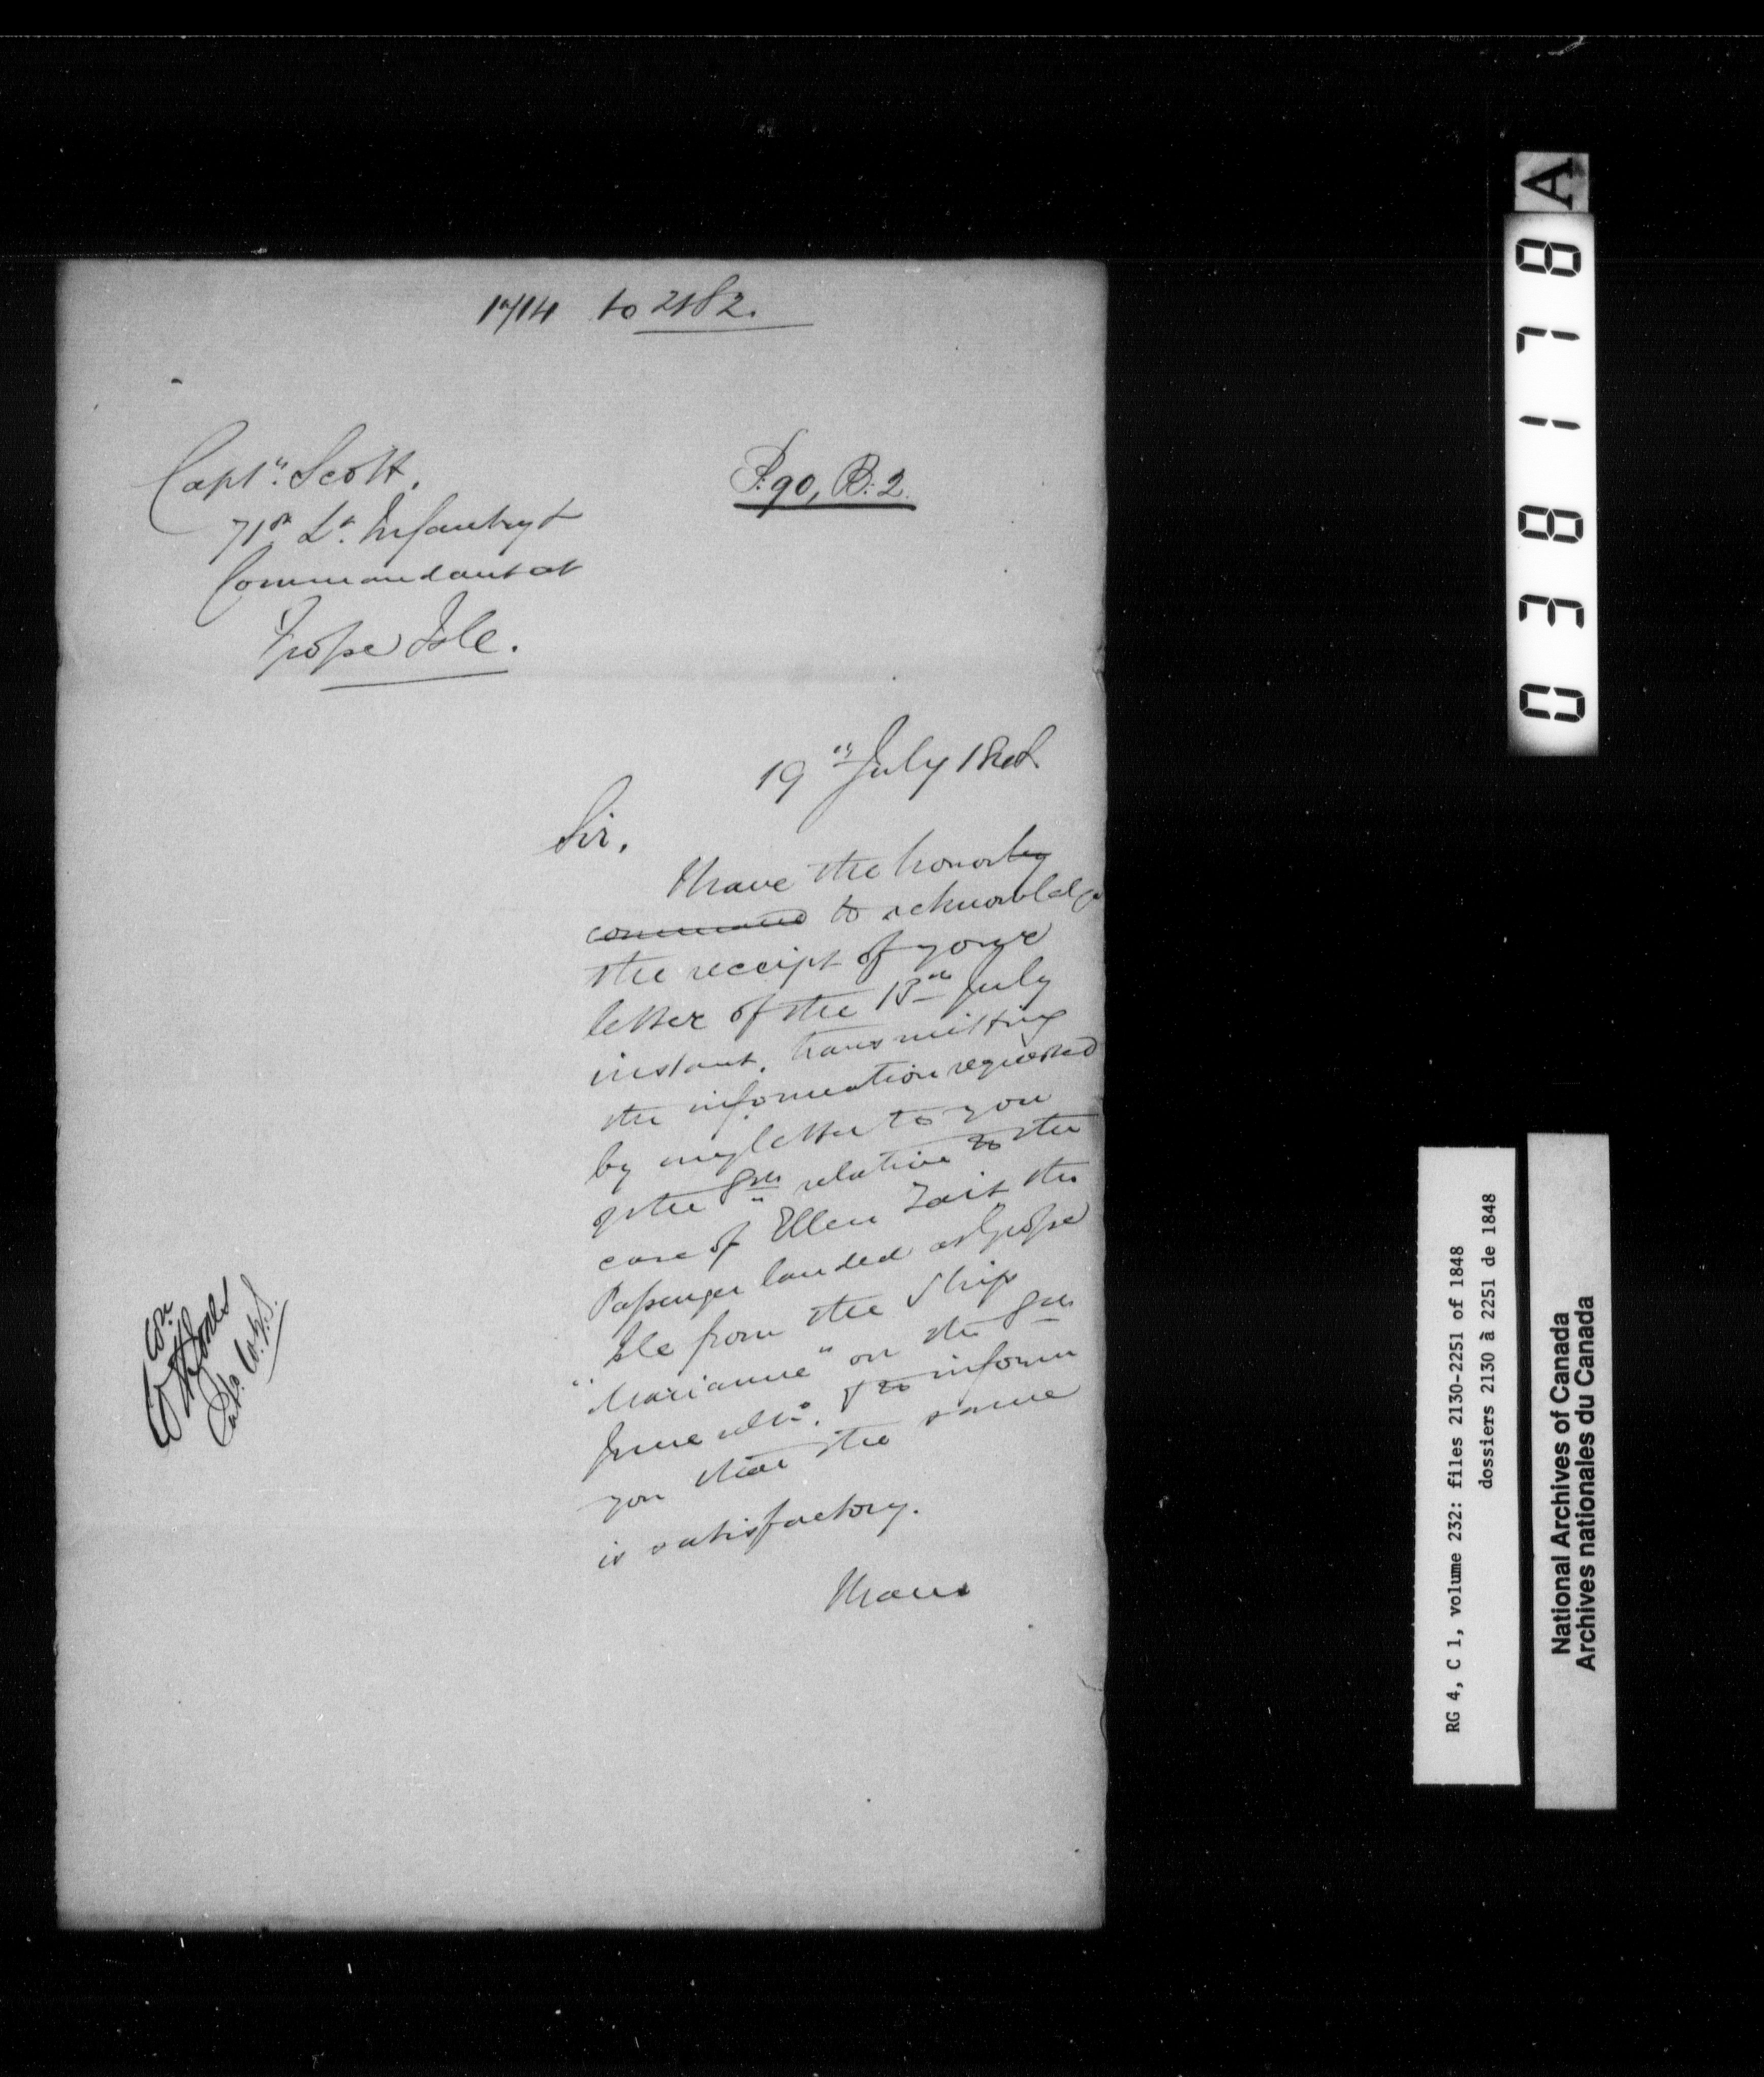 1714 to 2182.
Captn. Scott,
71st Lt. Infantry &
Commandant at
Grosse Isle.
P. 90, B. 2.
19th July 1848
Sir,
I have the honor by
command to acknowledge
the receipt of your
letter of the 13th July
instant, transmitting
the information requested
by my letter to you
of the 8th relative to the
case of Ellen Tait the
Passenger landed at Grosse
Isle from the Ship
"Marianne" on the 8th
June ulto. & to inform
you that the same
is satisfactory.
I have
A
038178
RG 4, C 1, volume 232: files 2130-2251 of 1848
dossiers 2130 à 2251 de 1848
National Archives of Canada
Archives nationales du Canada